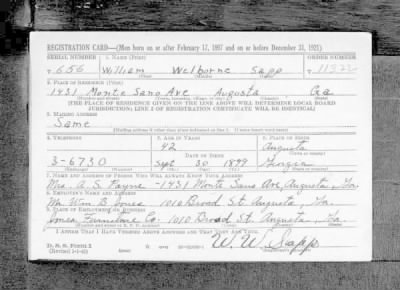 REGISTRATION CARD—(Men born on or after February 17, 1897 and on or before December 31, 1921)
SERIAL NUMBER 1. NAME (Print) ORDER NUMBER
T 656 William Welborne Sapp T
(First) (Middle) (Last)
2. PLACE OF RESIDENCE (Print)
1431 Monte Sano Ave Augusta Ga
(Number and street) (Town, township, village, or city) (County) (State)
[THE PLACE OF RESIDENCE GIVEN ON THE LINE ABOVE WILL DETERMINE LOCAL BOARD
JURISDICTION; LINE 2 OF REGISTRATION CERTIFICATE WILL BE IDENTICAL]
3. MAILING ADDRESS
Same
[Mailing address if other than place indicated on line 2. If same insert word same]
4. TELEPHONE 5. AGE IN YEARS 6. PLACE OF BIRTH
42 Augusta
DATE OF BIRTH
3-6730 Sept 30 1899
7. NAME AND ADDRESS OF PERSON WHO WILL ALWAYS KNOW YOUR ADDRESS
Mrs. A. S. Payne -1431 Monte Sano Ave, Augusta, Ga
8. EMPLOYER'S NAME AND ADDRESS
Mr. Wm B Jones 1010 Broad St. Augusta, Ga.
9. PLACE OF EMPLOYMENT OR BUSINESS
Jones Furniture Co. 1010 Broad St. Augusta, Ga.
I AFFIRM THAT I HAVE VERIFIED ABOVE ANSWERS AND THAT THEY ARE TRUE.
D. S. S. Form 1
W. W. Sapp